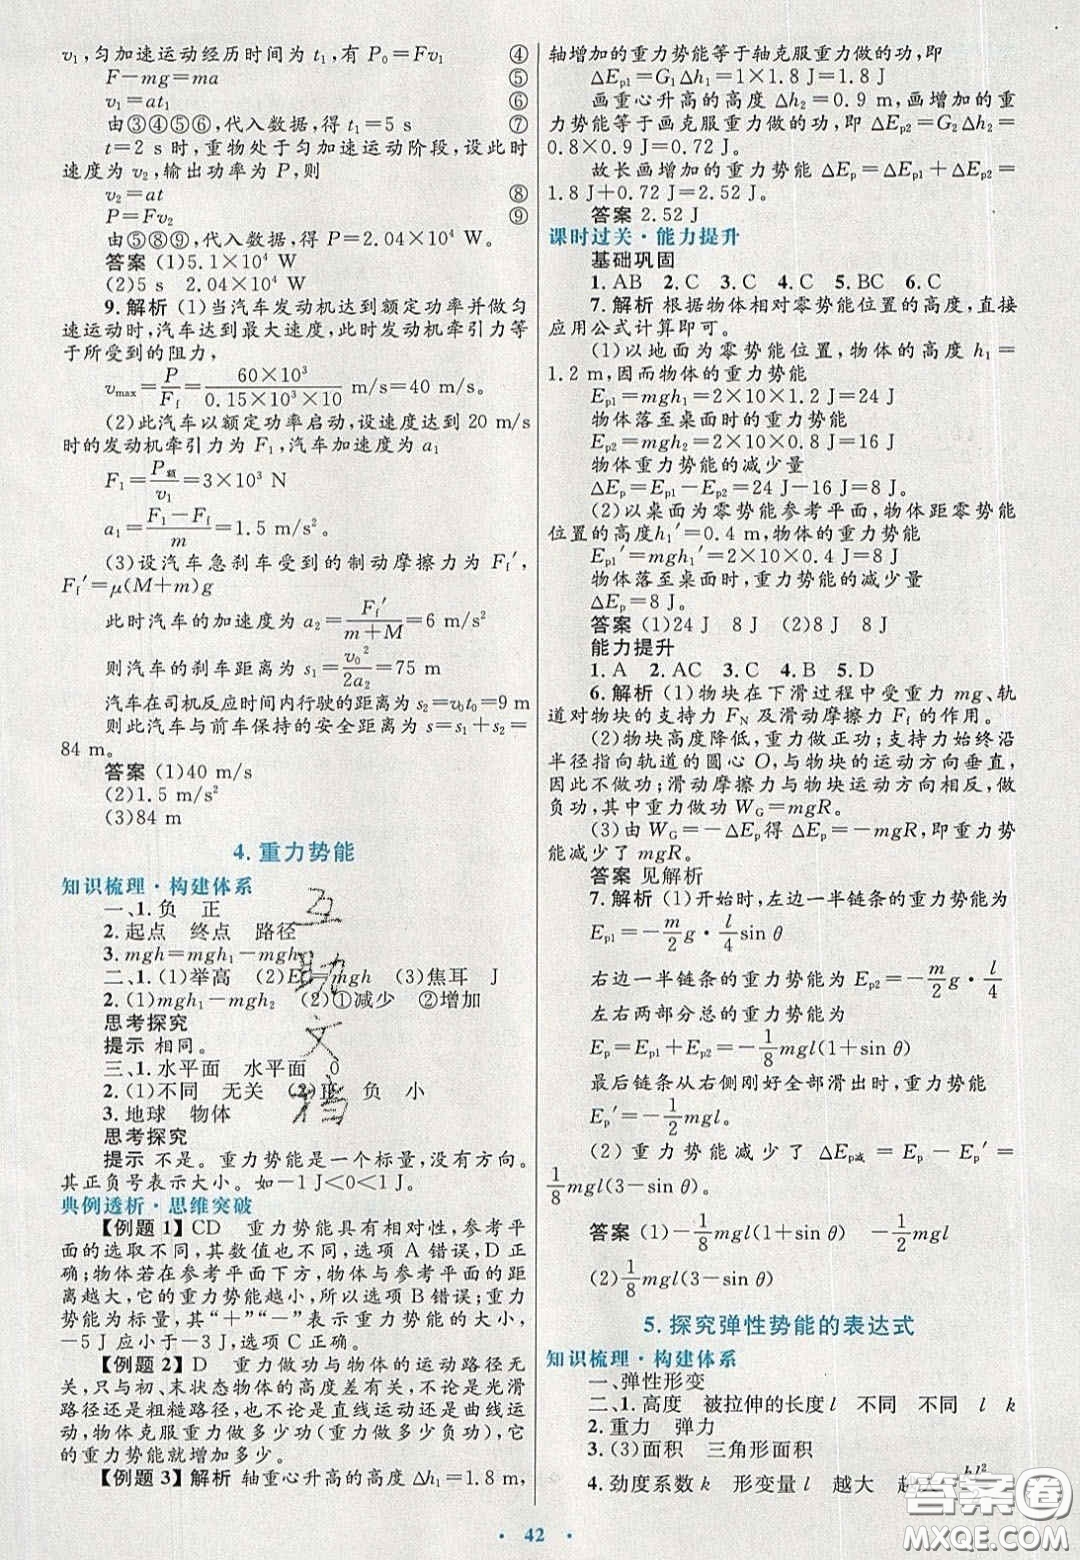 v₁,匀加速运动经历时间为 t₁,有 P₀=Fv₁ ④
F-mg=ma ⑤
v₁=at₁ ⑥
由③④⑤⑥,代入数据,得 t₁=5 s ⑦
t=2 s 时,重物处于匀加速运动阶段,设此时
速度为 v₂,输出功率为 P,则
v₂=at ⑧
P=Fv₂ ⑨
由⑤⑧⑨,代入数据,得 P=2.04×10⁴ W。
答案 (1)5.1×10⁴ W
(2)5 s 2.04×10⁴ W
9.解析 (1)当汽车发动机达到额定功率并做匀
速运动时,汽车达到最大速度,此时发动机牵引力等
于所受到的阻力,
v_max=P/F_f=60×10³/(0.15×10³×10) m/s=40 m/s。
(2)此汽车以额定功率启动,设速度达到 20 m/s
时的发动机牵引力为 F₁,汽车加速度为 a₁
F₁=P额/v₁=3×10³ N
a₁=(F₁-F_f)/m=1.5 m/s²。
(3)设汽车急刹车受到的制动摩擦力为 F_f′,
F_f′=μ(M+m)g
此时汽车的加速度为 a₂=F_f′/(m+M)=6 m/s²
则汽车的刹车距离为 s₁=v₀²/2a₂=75 m
汽车在司机反应时间内行驶的距离为 s₂=v₀t₀=9 m
则此汽车与前车保持的安全距离为 s=s₁+s₂=
84 m。
答案 (1)40 m/s
(2)1.5 m/s²
(3)84 m
4.重力势能
知识梳理·构建体系
一、1.负 正
2.起点 终点 路径
3.mgh=mgh₁-mgh₂
二、1.(1)举高 (2)Eₚ=mgh (3)焦耳 J
2.(1)mgh₁-mgh₂ (2)①减少 ②增加
思考探究
提示 相同。
三、1.水平面 水平面 0
2.(1)不同 无关 (2)正 负 小
3.地球 物体
思考探究
提示 不是。重力势能是一个标量,没有方向。
其正负号表示大小。如-1 J<0<1 J。
典例透析·思维突破
【例题 1】CD 重力势能具有相对性,参考平
面的选取不同,其数值也不同,选项 A 错误,D 正
确;物体若在参考平面下方,物体与参考平面的距
离越大,它的重力势能越小,所以选项 B 错误;重力
势能为标量,其“+”“-”表示重力势能的大小,
-5 J 应小于-3 J,选项 C 正确。
【例题 2】D 重力做功与物体的运动路径无
关,只与初、末状态物体的高度差有关,不论是光滑
路径还是粗糙路径,也不论是直线运动还是曲线运
动,物体克服重力做了多少功(重力做了多少负功),它
的重力势能就增加多少。
【例题 3】解析 轴重心升高的高度 Δh₁=1.8 m,
轴增加的重力势能等于轴克服重力做的功,即
ΔEₚ₁=G₁Δh₁=1×1.8 J=1.8 J
画重心升高的高度 Δh₂=0.9 m,画增加的重
力势能等于画克服重力做的功,即 ΔEₚ₂=G₂Δh₂=
0.8×0.9 J=0.72 J。
故长画增加的重力势能 ΔEₚ=ΔEₚ₁+ΔEₚ₂=
1.8 J+0.72 J=2.52 J。
答案 2.52 J
课时过关·能力提升
基础巩固
1.AB 2.C 3.C 4.C 5.BC 6.C
7.解析 根据物体相对零势能位置的高度,直接
应用公式计算即可。
(1)以地面为零势能位置,物体的高度 h₁=
1.2 m,因而物体的重力势能
Eₚ₁=mgh₁=2×10×1.2 J=24 J
物体落至桌面时的重力势能
Eₚ₂=mgh₂=2×10×0.8 J=16 J
物体重力势能的减少量
ΔEₚ=Eₚ₁-Eₚ₂=24 J-16 J=8 J。
(2)以桌面为零势能参考平面,物体距零势能
位置的高度h₁′=0.4 m,物体的重力势能
Eₚ₁′=mgh₁′=2×10×0.4 J=8 J
物体落至桌面时,重力势能的减少量
ΔEₚ=8 J。
答案 (1)24 J 8 J (2)8 J 8 J
能力提升
1.A 2.AC 3.C 4.B 5.D
6.解析 (1)物块在下滑过程中受重力 mg、轨
道对物块的支持力 F_N 及滑动摩擦力 F_f 的作用。
(2)物块高度降低,重力做正功;支持力始终沿
半径指向轨道的圆心 O,与物块的运动方向垂直,
因此不做功;滑动摩擦力与物块运动方向相反,做
负功,其中重力做功 W_G=mgR。
(3)由 W_G=-ΔEₚ得 ΔEₚ=-mgR,即重力势
能减少了 mgR。
答案 见解析
7.解析 (1)开始时,左边一半链条的重力势能为
Eₚ₁=-m/2 g·l/4 sin θ
右边一半链条的重力势能为 Eₚ₂=-m/2 g·l/4
左右两部分总的重力势能为
Eₚ=Eₚ₁+Eₚ₂=-1/8 mgl(1+sin θ)
最后链条从右侧刚好全部滑出时,重力势能
Eₚ′=-1/2 mgl。
(2)重力势能减少了 ΔEₚ减=Eₚ-Eₚ′=
1/8 mgl(3-sin θ)。
答案 (1)-1/8 mgl(1+sin θ) -1/2 mgl
(2)1/8 mgl(3-sin θ)
5.探究弹性势能的表达式
知识梳理·构建体系
一、弹性形变
二、1.高度 被拉伸的长度 l 不同 不同 l k
2.重力 弹力
3.(3)面积 三角形面积
4.劲度系数 k 形变量 l 越大 越大 kl²
· 42 ·
互助文档
答案圈
MXQE.COM